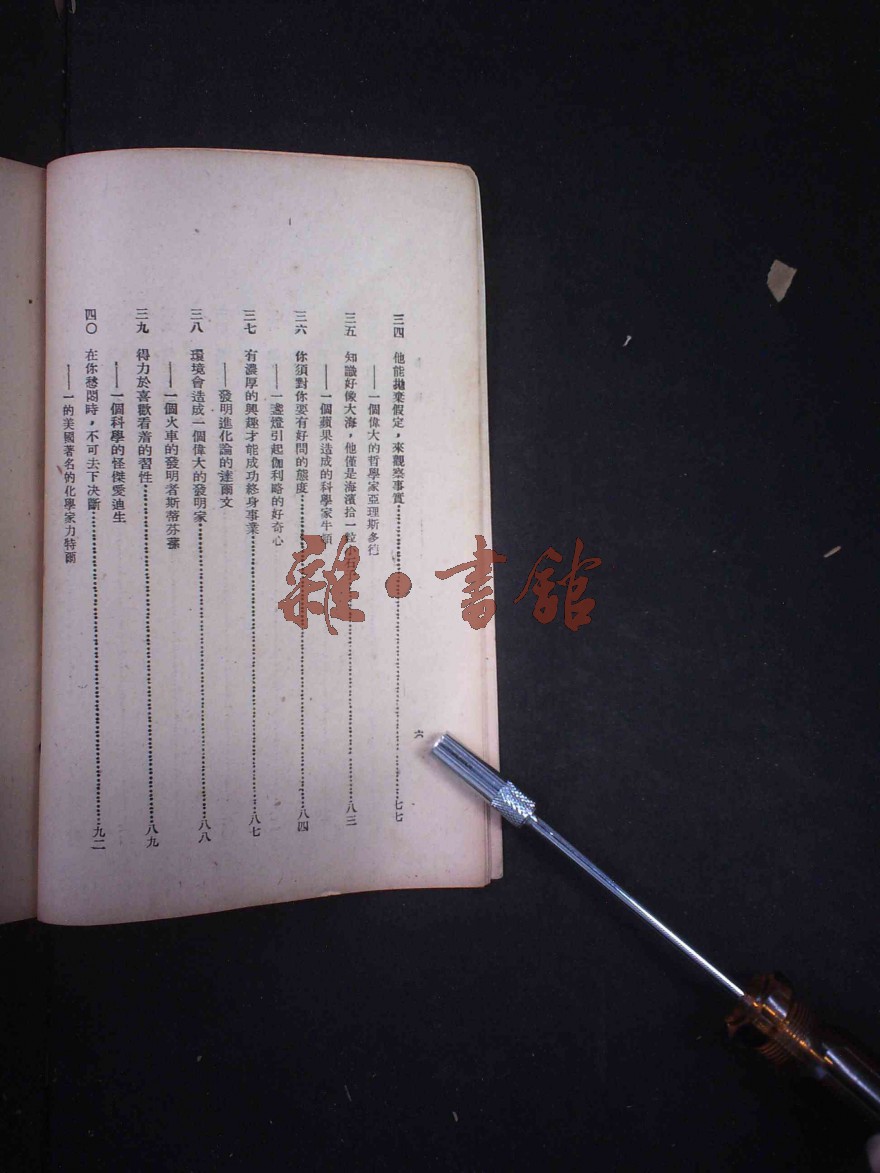 三四　他能拋棄假定，來觀察事實……七七
——一個偉大的哲學家亞理斯多德
三五　知識好像大海，他僅是海濱拾一粒……八三
——一個蘋果造成的科學家牛頓
三六　你須對你要有好問的態度……八四
——一盞燈引起伽利略的好奇心
三七　有濃厚的興趣才能成功終身事業……八七
——發明進化論的達爾文
三八　環境會造成一個偉大的發明家……八八
——一個火車的發明者斯蒂芬蓀
三九　得力於喜歡看舊的習性……八九
——一個科學的怪傑愛迪生
四〇　在你愁悶時，不可去下決斷……九二
——一的美國著名的化學家力特爾
六
雜·書館